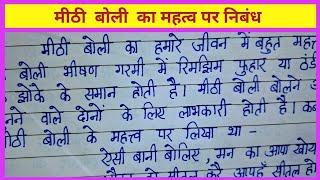 मीठी बोली का महत्व पर निबंध
मीठी बोली का हमारे जीवन में बहुत महत्
बोली भीषण गरमी में रिमझिम फुहार या ठंडी
झोंके के समान होती है। मीठी बोली बोलने
वाले दोनों के लिए लाभकारी होती है।
मीठी बोली के महत्त्व पर लिखा था -
ऐसी बानी बोलिए, मन का आपा खोय
सीतल